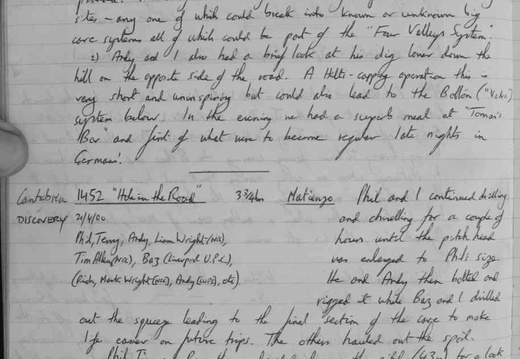 sites - any one of which could break into known or unknown big
cave systems all of which could be part of the "Four Valleys System".
2) Andy and I also had a brief look at his dig lower down the
hill on the opposite side of the road. A Hilti-capping operation this is
very short and uninspiring but could also lead to the Bollón ("Vaho")
system below. In the evening we had a superb meal at "Tomas's
Bar" and first of what were to become regular late nights in
Germans!
Cantabria 1452 "Hole in the Road" 3¾hrs Matienzo Phil and I continued drilling
DISCOVERY 21/4/00 and chiselling for a couple of
Phil, Terry, Andy, Liam Wright hours until the pitch head
Tim Allen, Baz (Liverpool U.P.C.), was enlarged to Phil's size.
(Rich, Mark Wright, Andy, etc) He and Andy then bolted and
rigged it while Baz and I drilled
out the squeeze leading to the final section of the cave to make
life easier on future trips. The others hauled out the spoil.
Phil, for a look